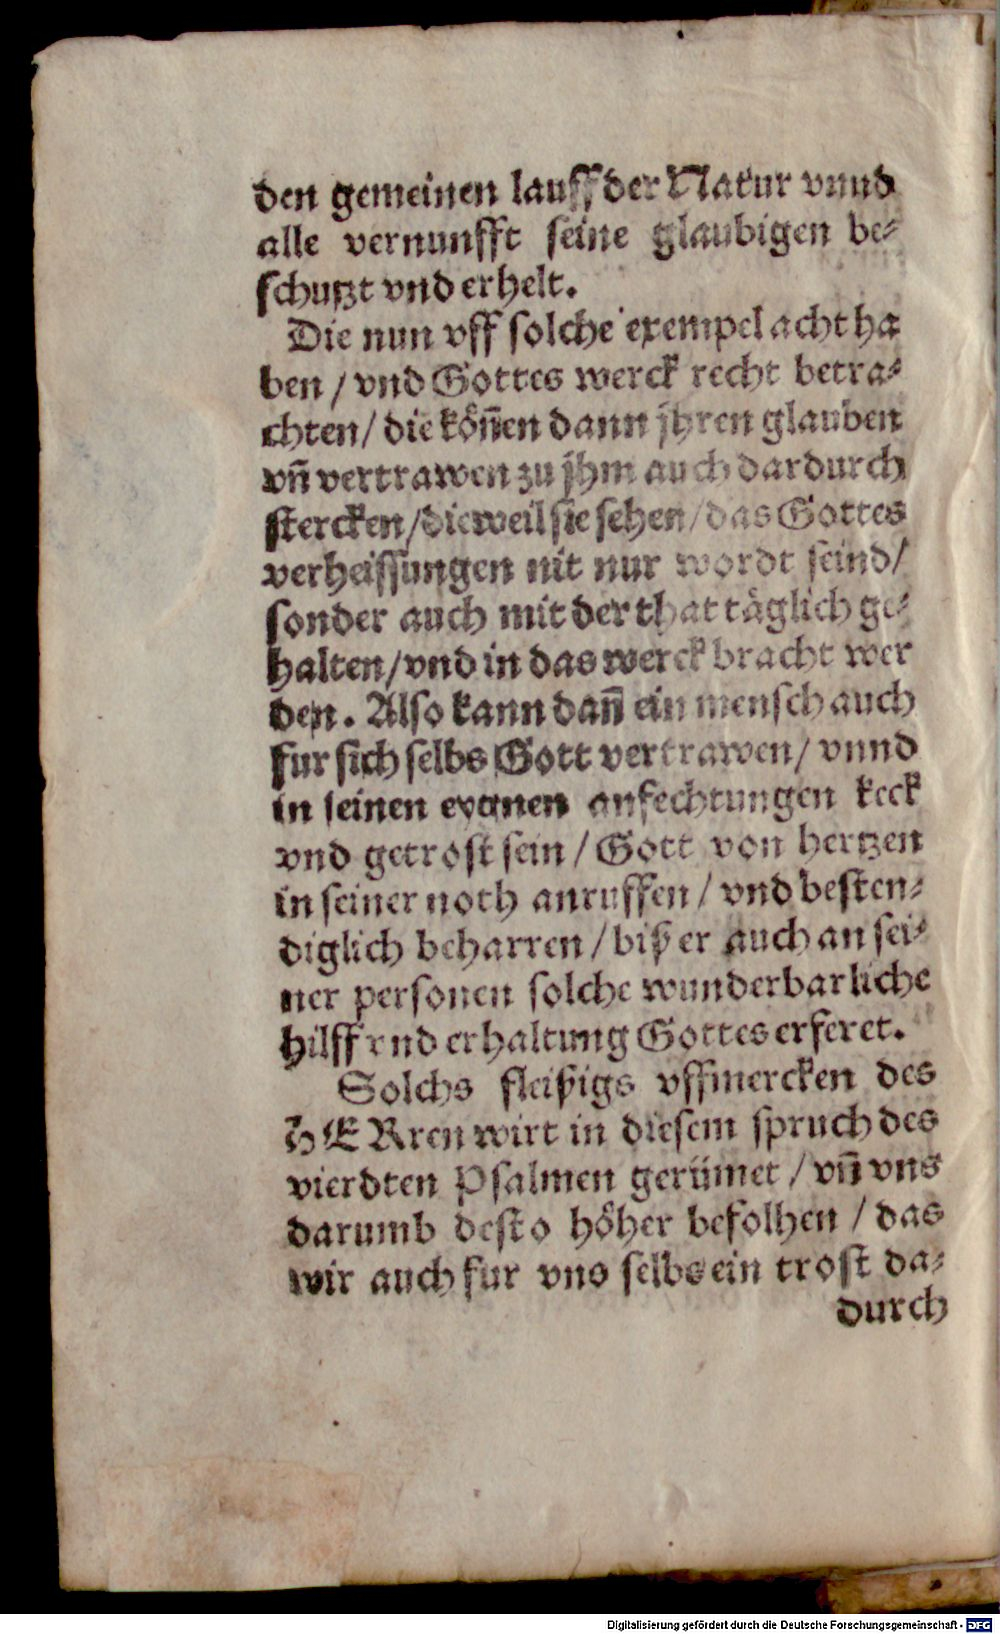 den gemeinen lauff der Natur vnnd
alle vernunfft seine glaubigen be⸗
schutzt vnd erhelt.
Die nun vff solche exempel acht ha
ben / vnd Gottes werck recht betra⸗
chten / die köñen dann jhren glauben
vñ vertrawen zu jhm auch dardurch
stercken / dieweil sie sehen / das Gottes
verheissungen nit nur wordt seind /
sonder auch mit der that täglich ge⸗
halten / vnd in das werck bracht wer
den. Also kann dañ ein mensch auch
fur sich selbs Gott vertrawen / vnnd
in seinen eygnen anfechtungen keck
vnd getrost sein / Gott von hertzen
in seiner noth anruffen / vnd besten⸗
diglich beharren / biß er auch an sei⸗
ner personen solche wunderbarliche
hilff vnd erhaltung Gottes erferet.
Solchs fleißigs vffmercken des
HERren wirt in diesem spruch des
vierdten Psalmen gerümet / vñ vns
darumb desto höher befolhen / das
wir auch fur vns selbs ein trost da⸗
durch
Digitalisierung gefördert durch die Deutsche Forschungsgemeinschaft - DFG